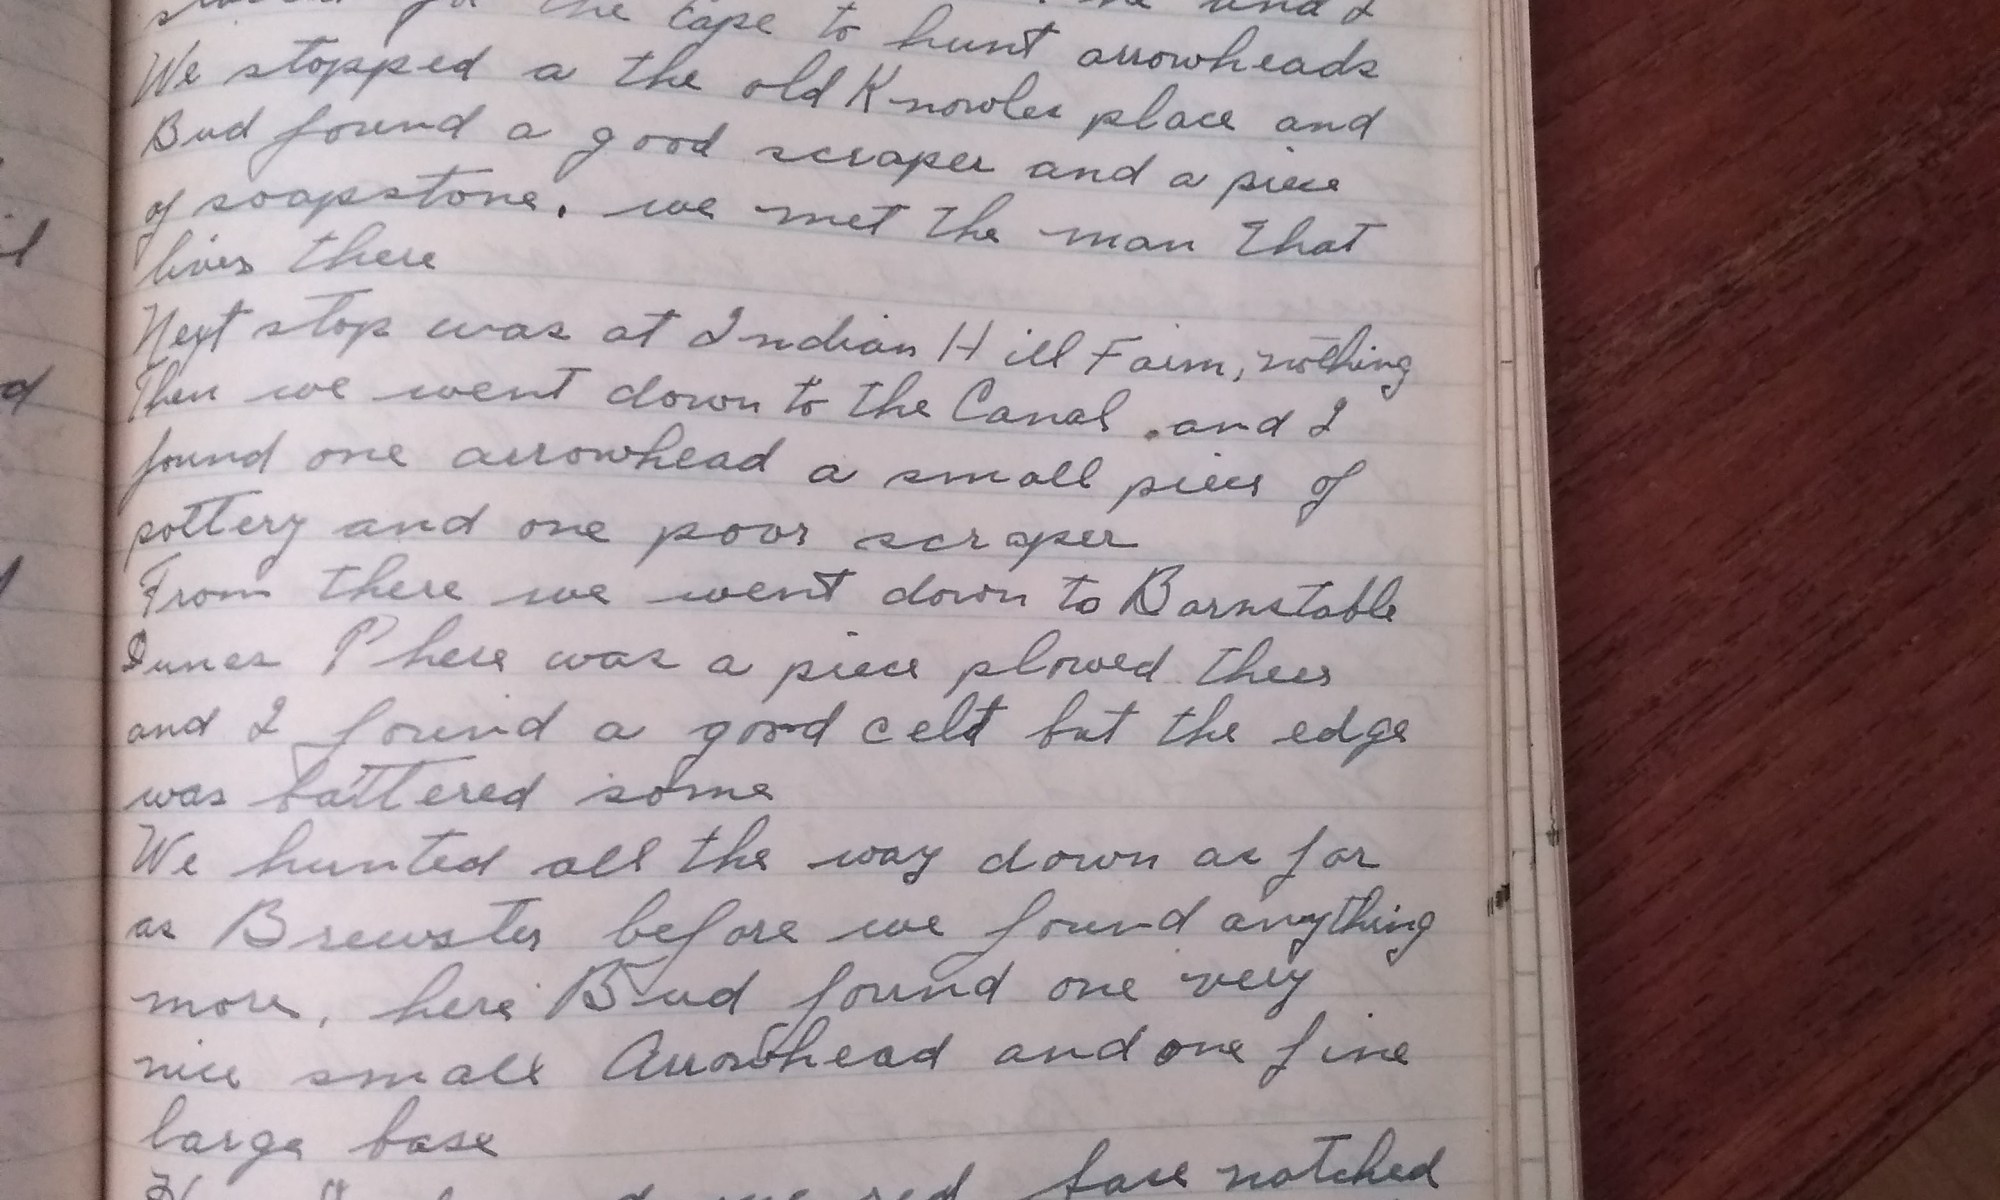 the Cape to hunt arrowheads
We stopped a the old Knowles place and
Bud found a good scraper and a piece
of soapstone. we met the man that
lives there
Next stop was at Indian Hill Farm, nothing
Then we went down to the Canal. and I
found one arrowhead a small piece of
pottery and one poor scraper
From there we went down to Barnstable
Dunes There was a piece plowed there
and I found a good celt but the edge
was battered some
We hunted all the way down as far
as Brewster before we found anything
more, here Bud found one very
nice small Arrowhead and one fine
large base
red base notched